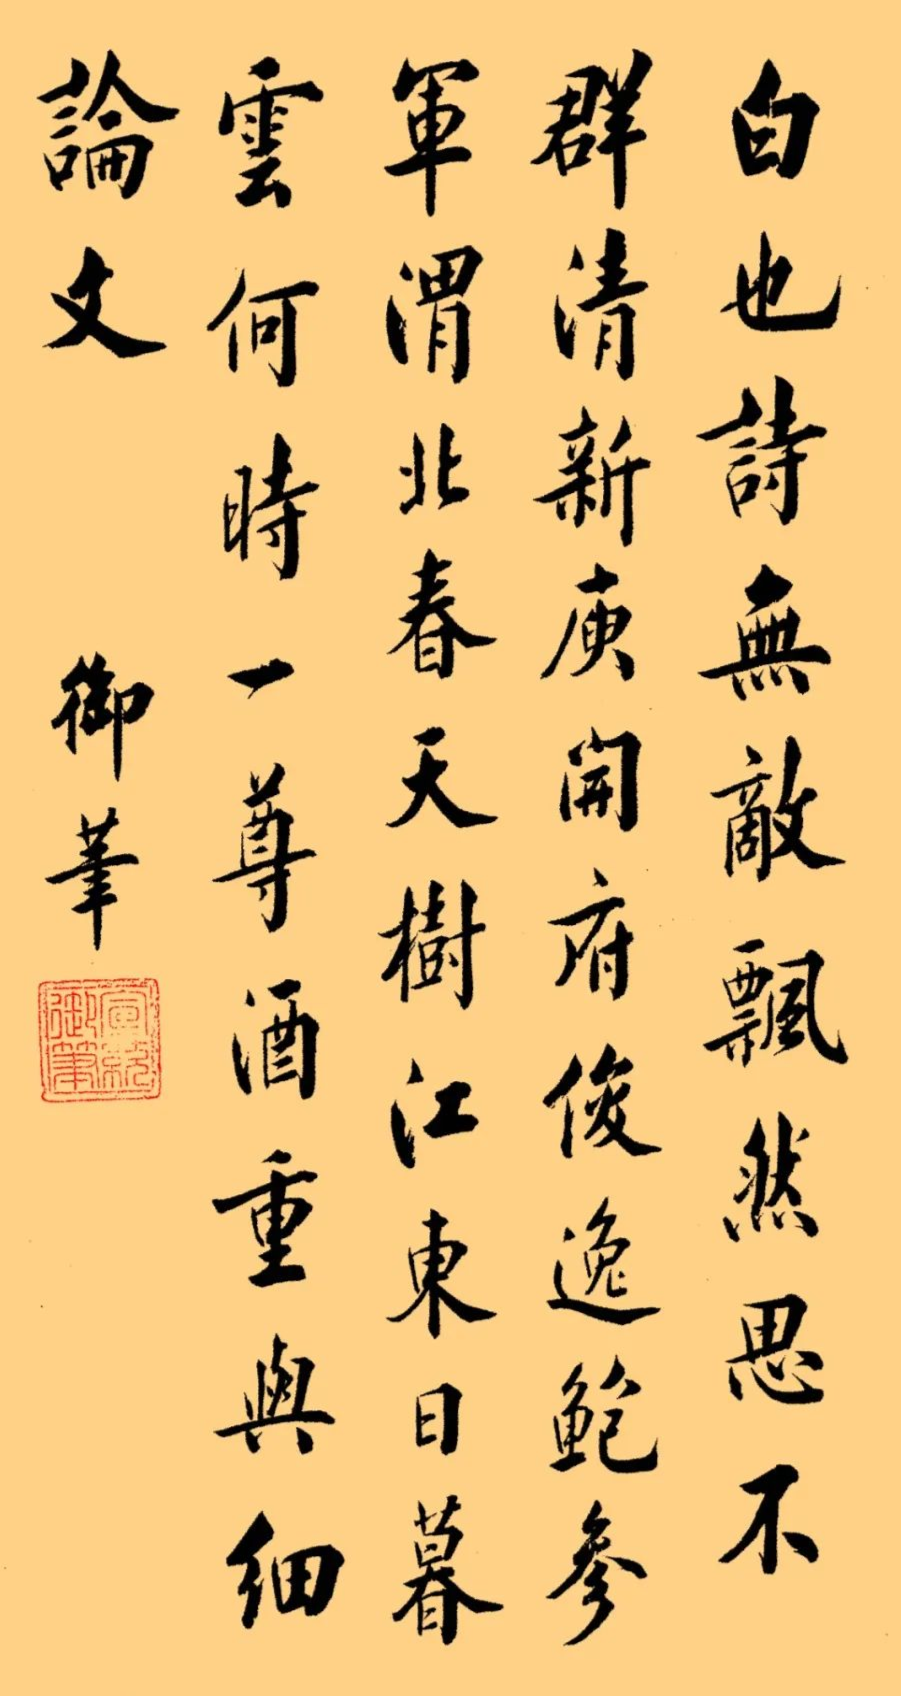 白也詩無敵飄然思不
群清新庾開府俊逸鮑參
軍渭北春天樹江東日暮
雲何時一尊酒重與細
論文
御筆
宣統御筆